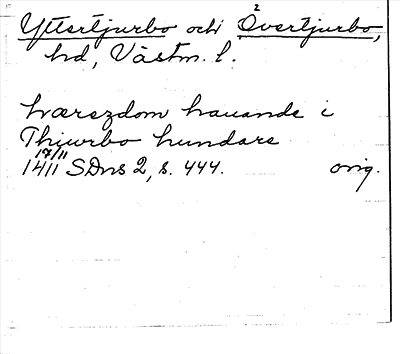 Yttertjurbo och Övertjurbo,
2
hd, Västm. l.
hværezdom hauande i
Thiurbo hundare
17/11
1411 SDns 2, s. 444. orig.